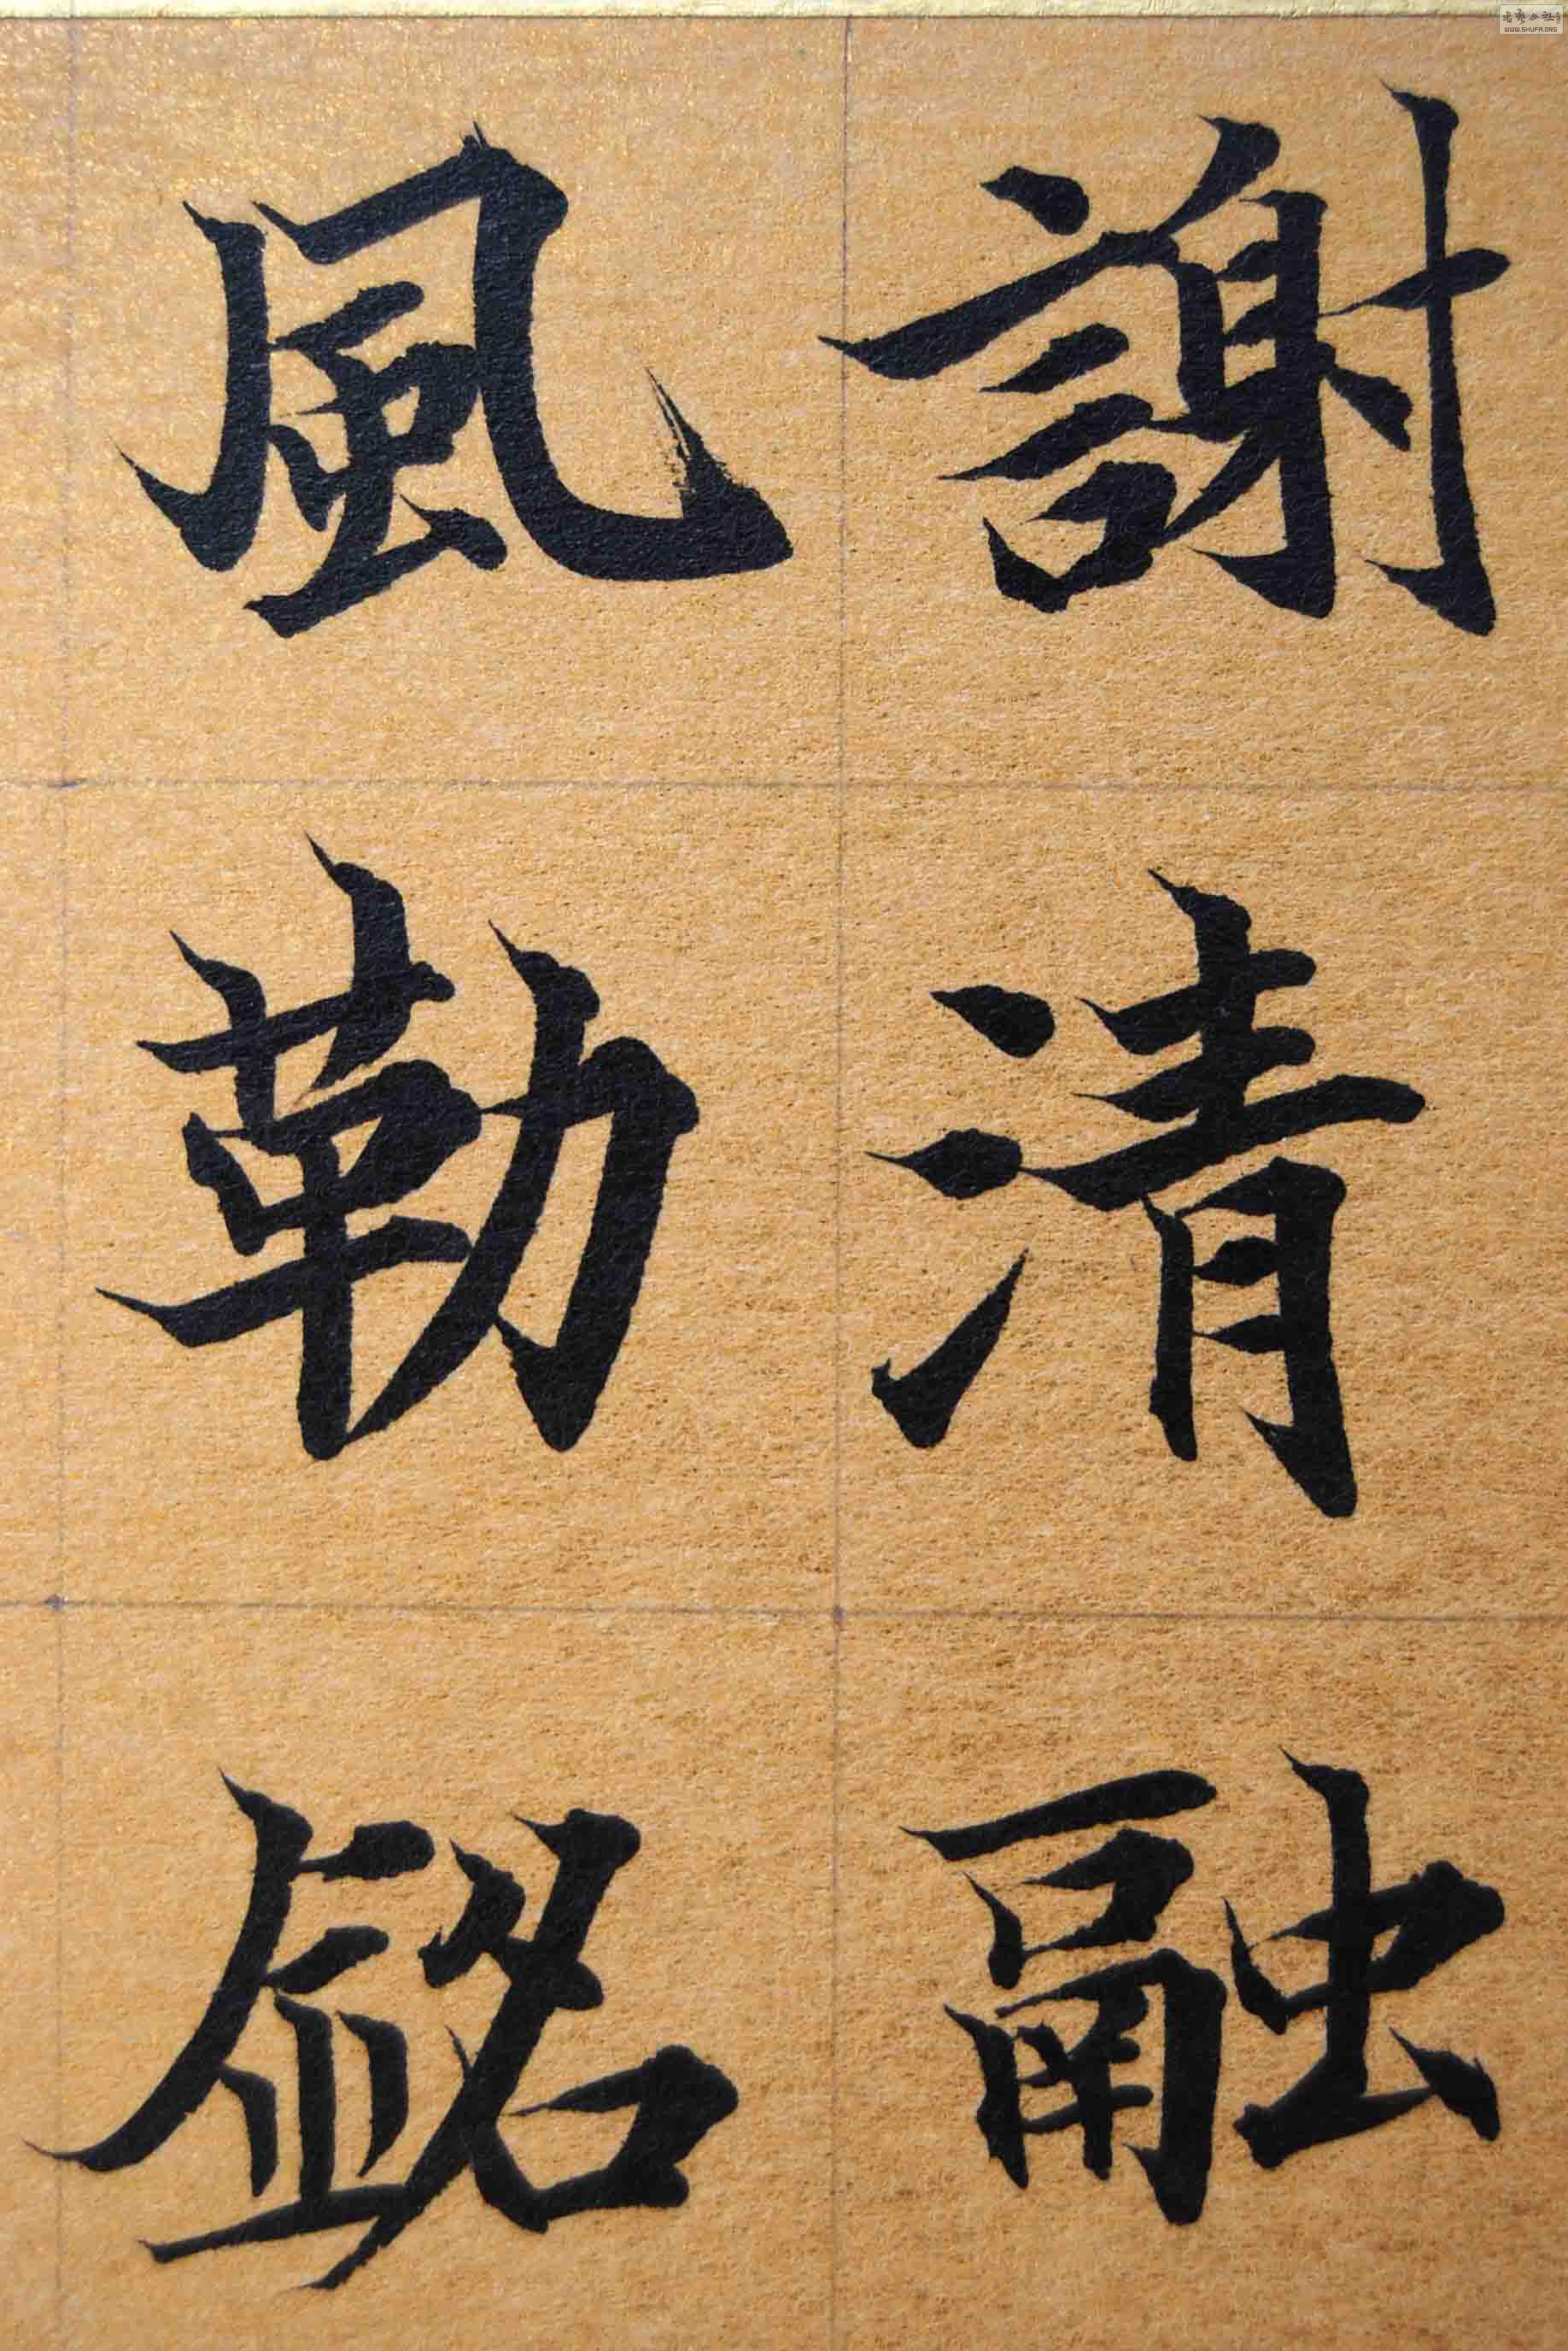 謝清融
風勒銘
WWW.SHUFA.ORG